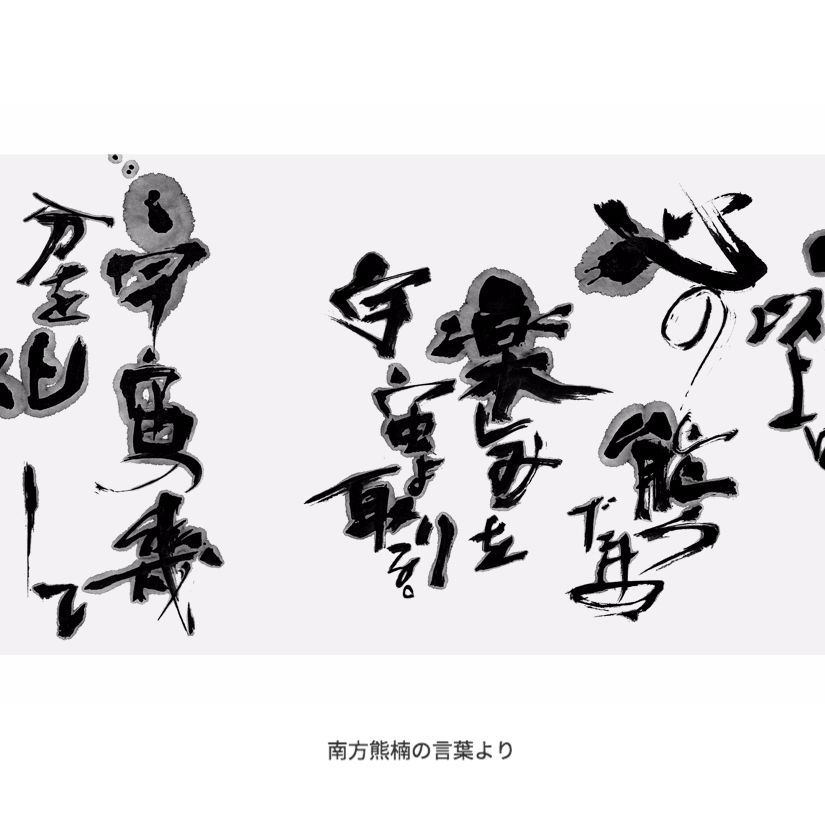 以上は
心の能う
だけの
楽しみを
宇宙より取る。
宇宙の幾
分を化して
南方熊楠の言葉より